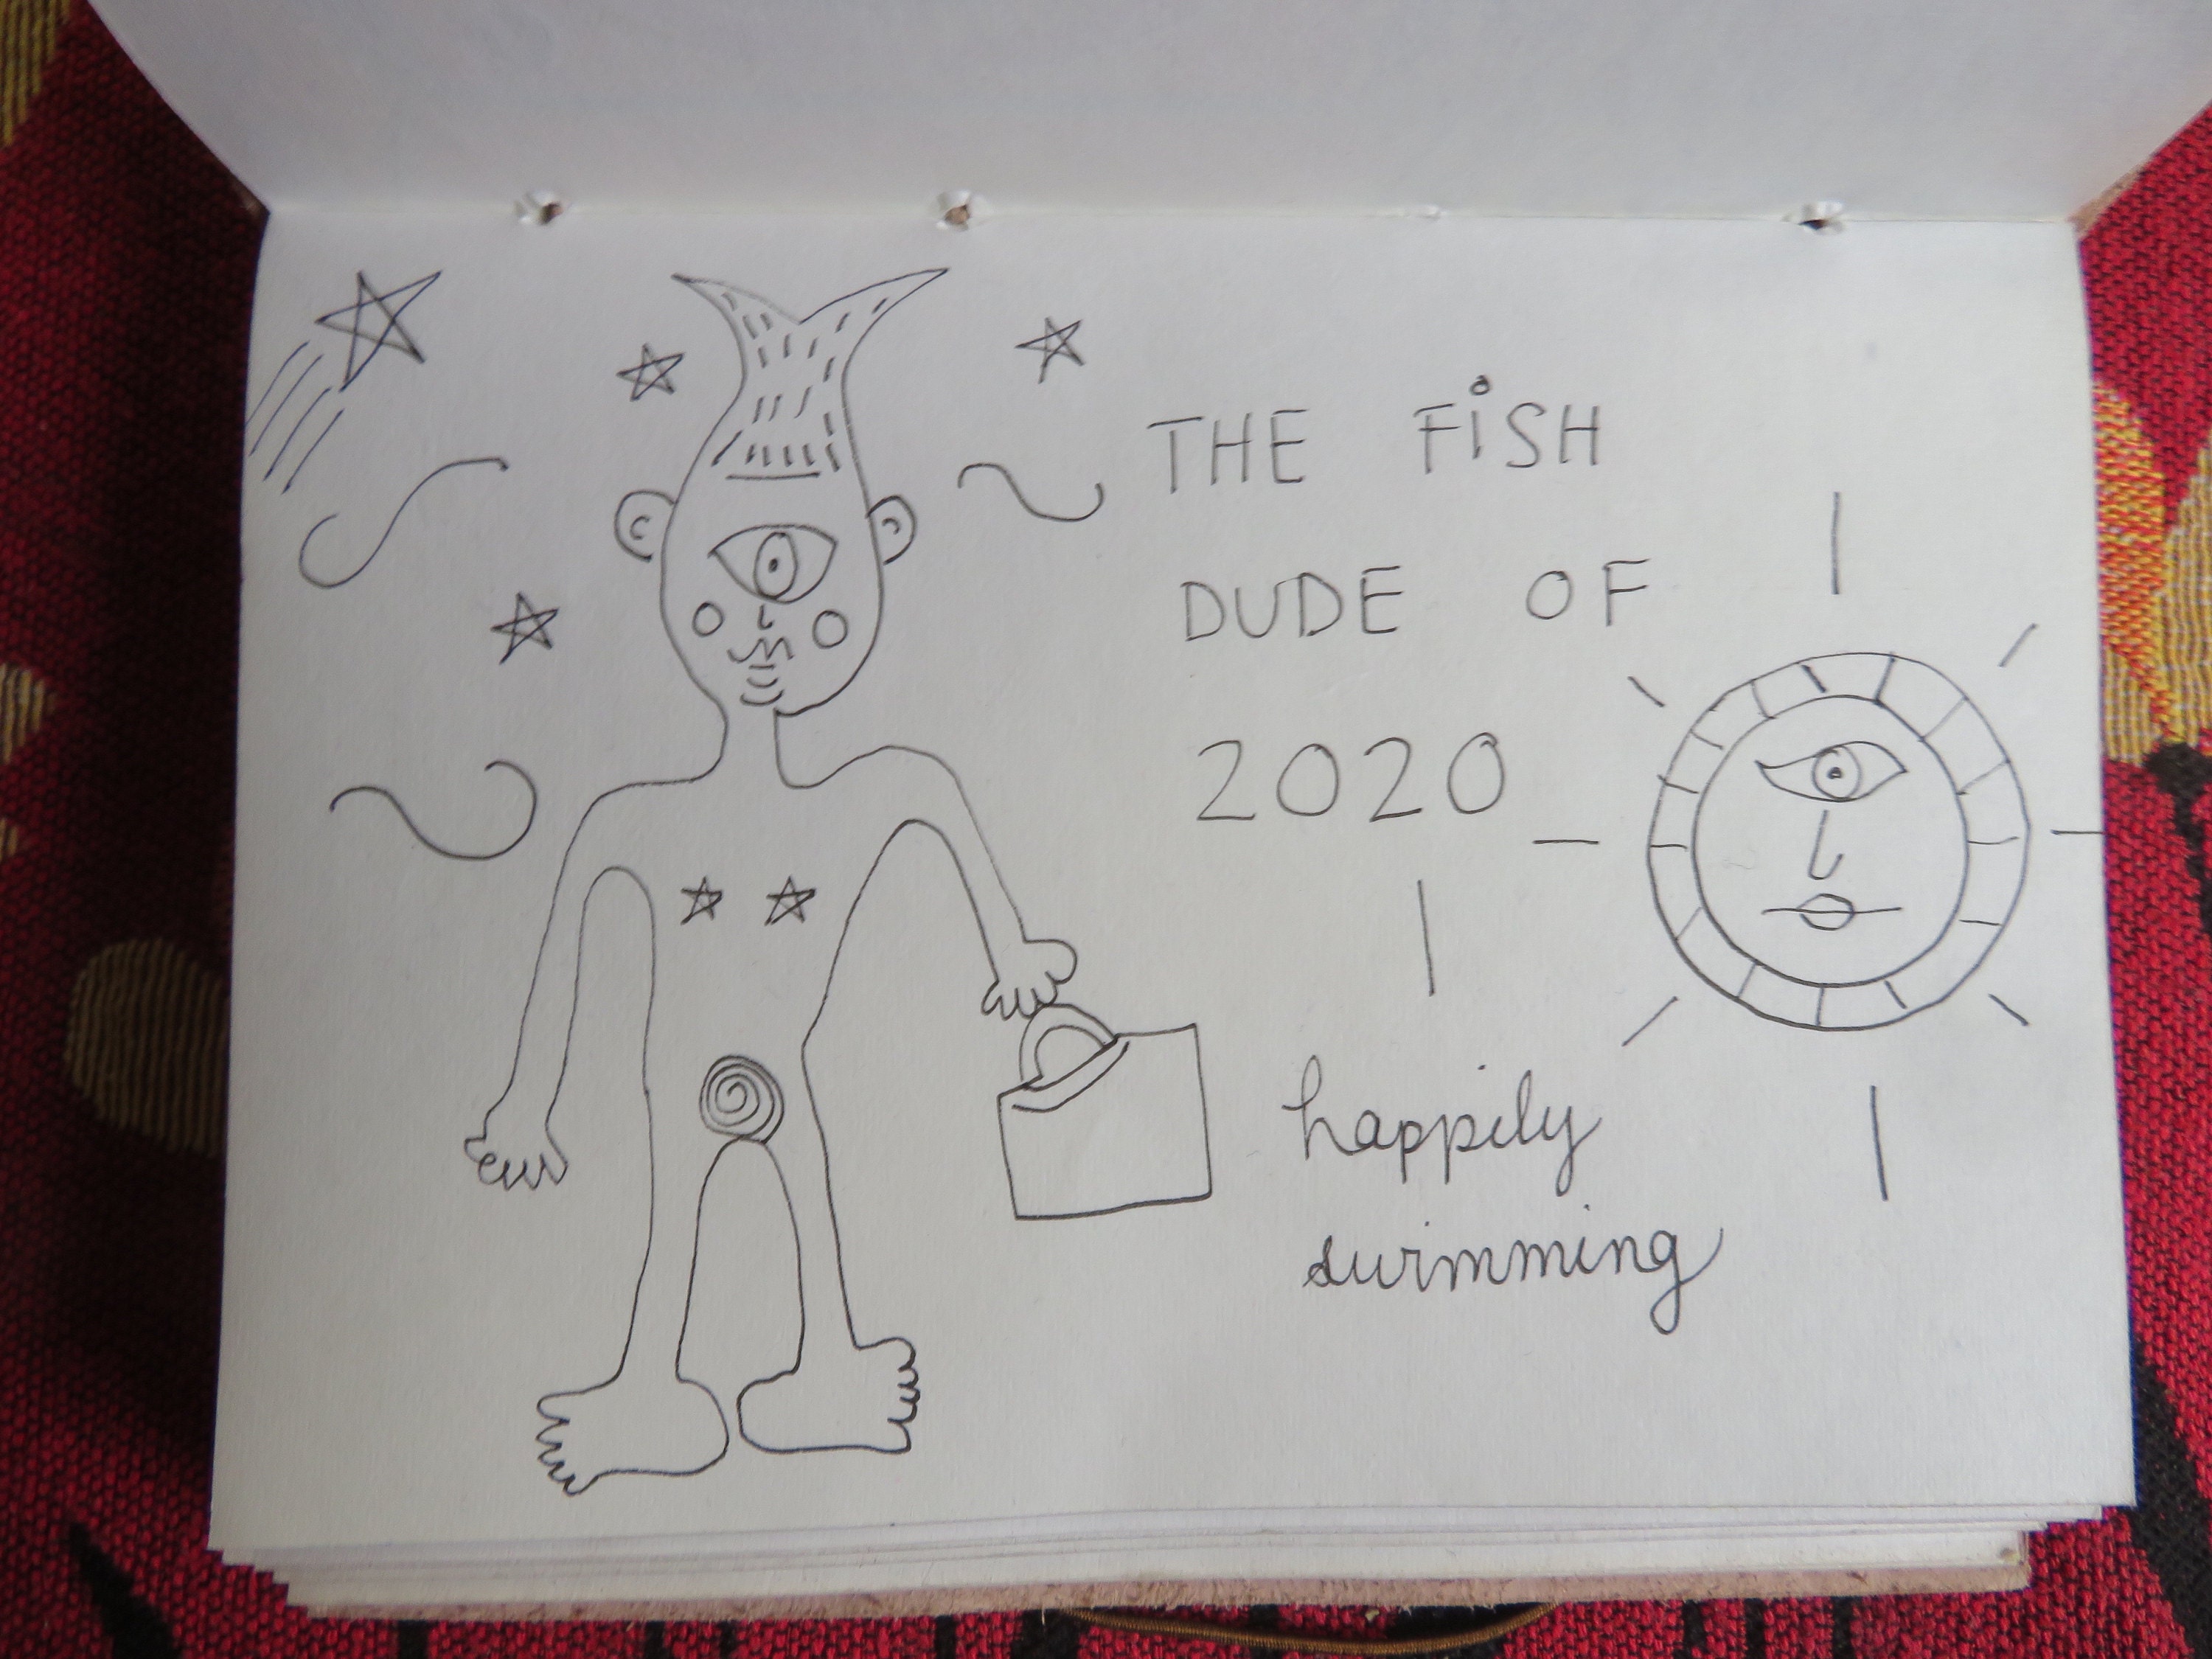 THE FiSH
DUDE OF
2020
happily
swimming